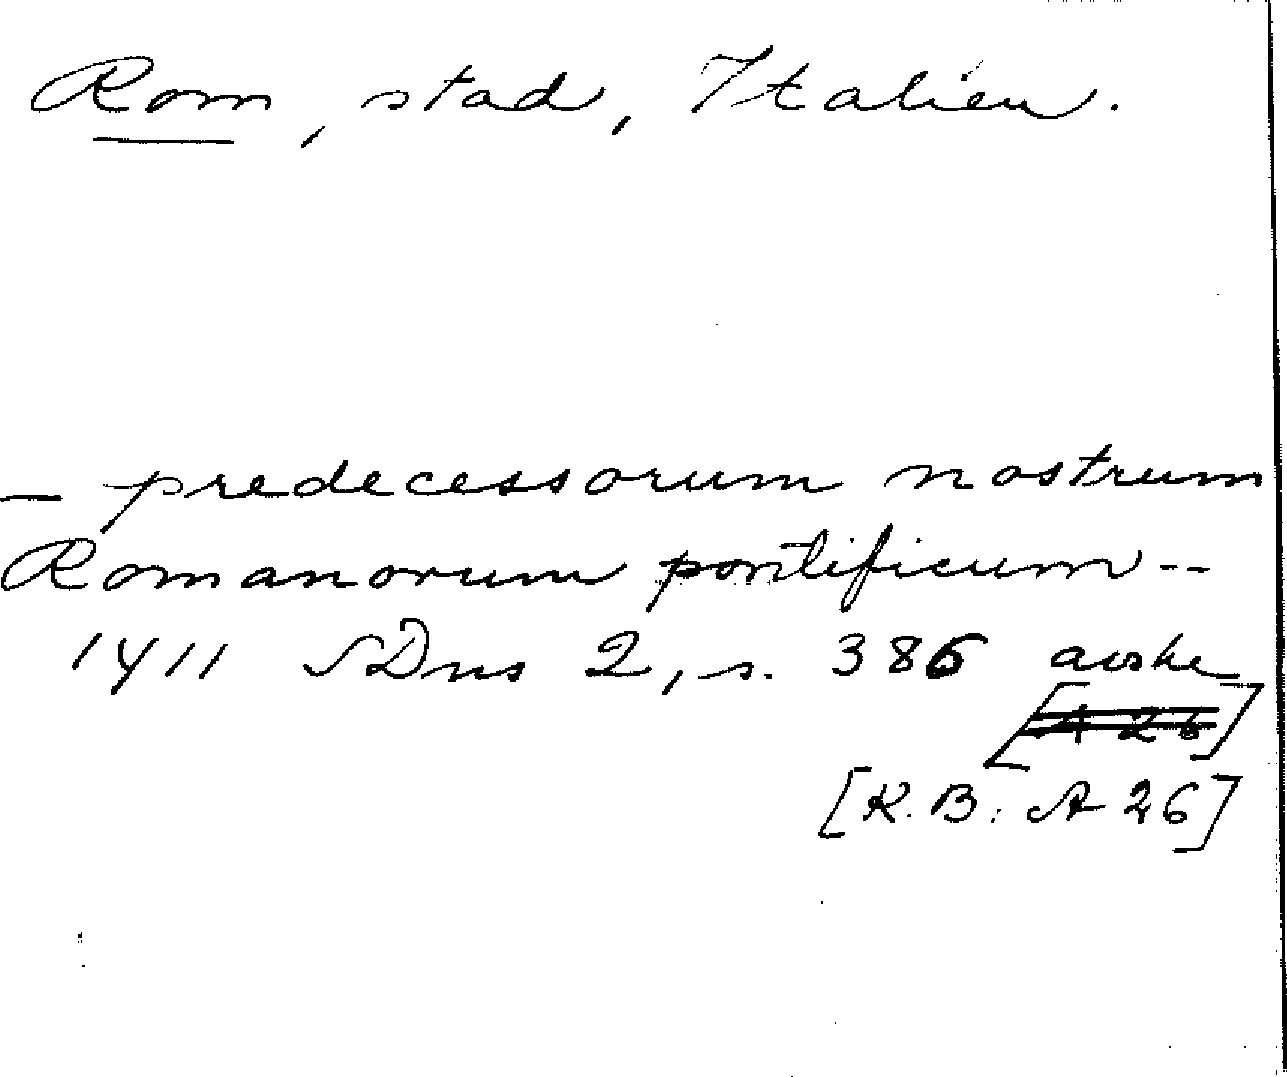 Rom, stad, Italien.
- predecessorum nostrum
Romanorum pontificum --
1411 SDns 2, s. 386 avskr
[A 26]
[K.B: A 26]